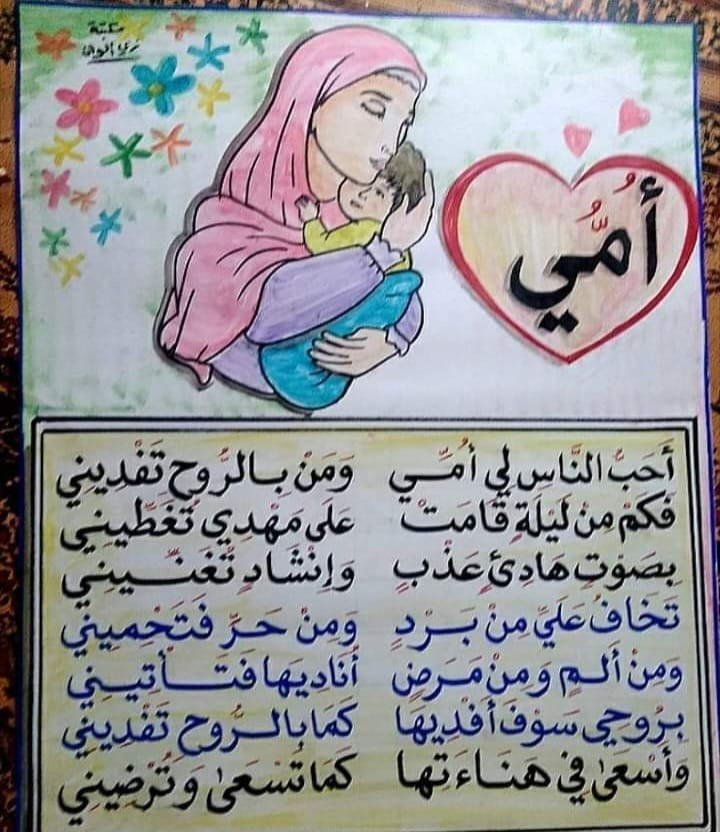 مكتبة
أُمُّي
أَحَبُّ النَّاسِ لِي أُمِّي وَمَنْ بِالرُّوحِ تَفْدِينِي
فَكَمْ مِنْ لَيْلَةٍ قَامَتْ عَلَى مَهْدِي تُغَطِّينِي
بِصَوْتٍ هَادِئٍ عَذْبٍ وَإِنْشَادٍ تُغَنِّينِي
تَخَافُ عَلَيَّ مِنْ بَرْدٍ وَمِنْ حَرٍّ فَتَحْمِينِي
وَمِنْ أَلَمٍ وَمِنْ مَرَضٍ أُنَادِيهَا فَتَأْتِينِي
بِرُوحِي سَوْفَ أَفْدِيهَا كَمَا بِالرُّوحِ تَفْدِينِي
وَأَسْعَى فِي هَنَاءَتِهَا كَمَا تَسْعَى وَتُرْضِينِي